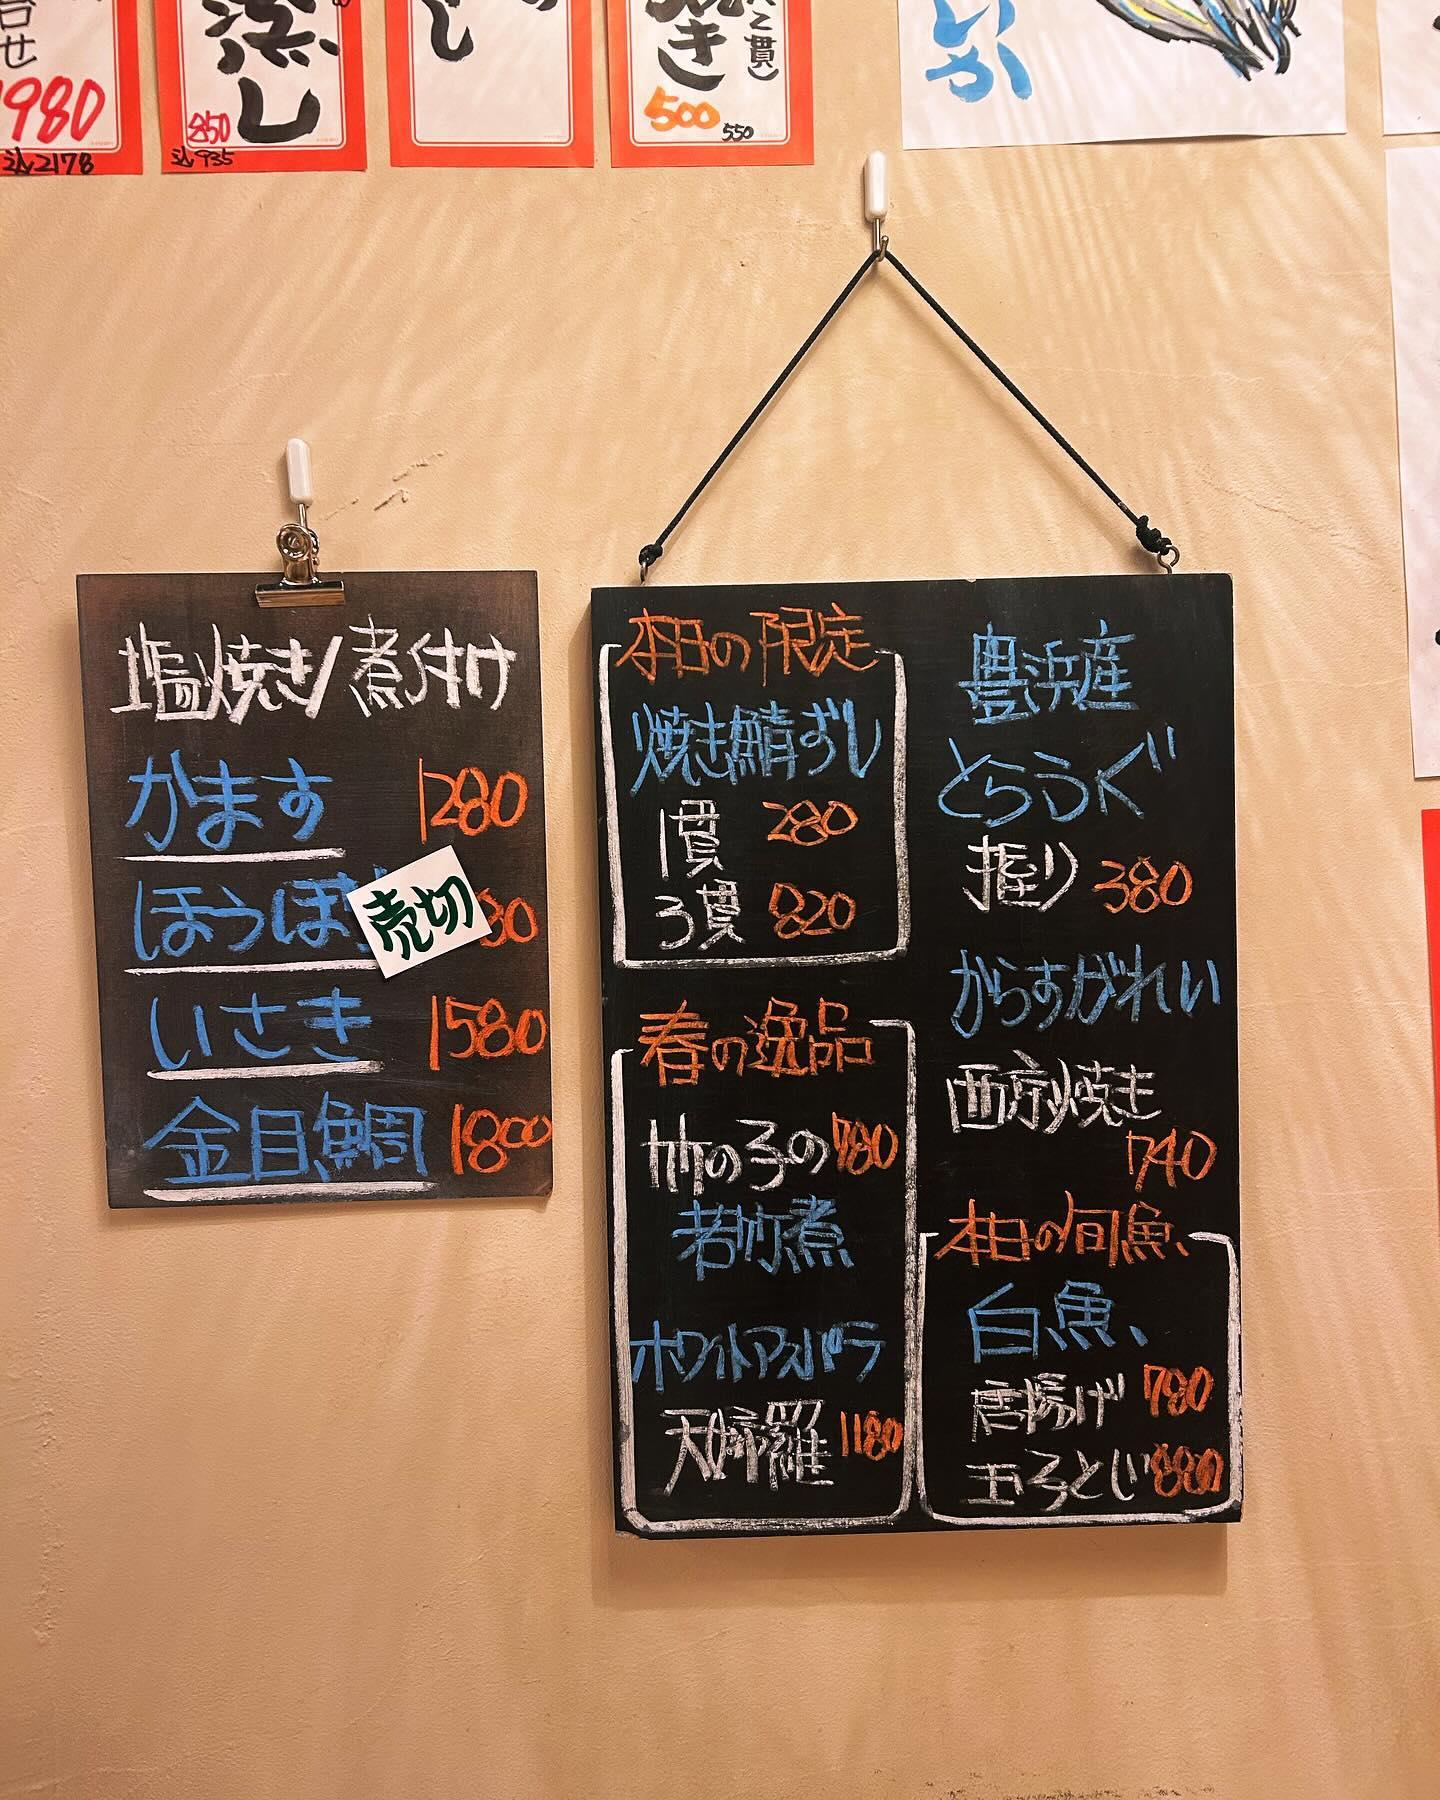 合せ
1980
込2178
蒸し
850
込935
し
焼き
二貫)
500
550
いか
塩焼き/煮付け
かます 1280
ほうぼ 売切 80
いさき 1580
金目鯛 1800
本日の限定
焼き鯖ずし
1貫 280
3貫 820
春の逸品
竹の子の 780
若竹煮
ホワイトアスパラ
天婦羅 1180
豊浜産
とらふぐ
握り 380
からすがれい
西京焼き
740
本日の旬魚
白魚
唐揚げ 780
玉子とじ 880